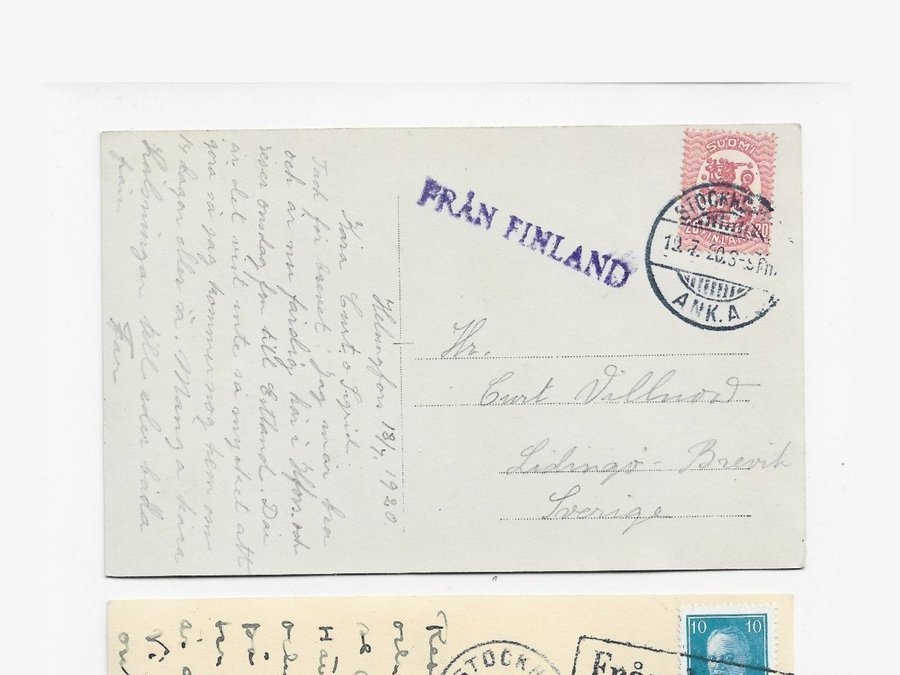 Helsingfors 18/7 1920
Kära Curt o Sigrid.
Tack för brevet. Jag mår bra
och är nu färdig här i Hfors. och
reser onsdag fm till Estland. Där
är det nist inte så mycket att
göra så jag kommer nog hem om
14 dagar eller så. Många kära
hälsningar till eder båda
från Far
FRÅN FINLAND
SUOMI
FINLAND
STOCKHOLM
19.7.20.3-5 Fm.
ANK.A.
Hr.
Curt Villnord
Lidingö-Brevik
Sverige
10 10
STOCKH
Frå